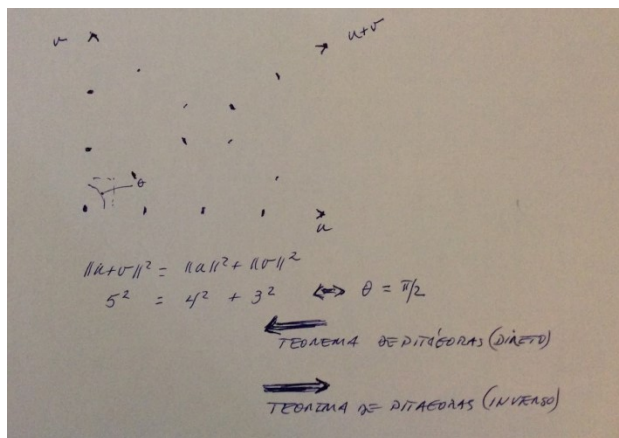 v
u+v
θ
u
||u+v||² = ||u||² + ||v||²
5² = 4² + 3² ⟺ θ = π/2
TEOREMA DE PITÁGORAS (DIRETO)
TEOREMA DE PITAGORAS (INVERSO)